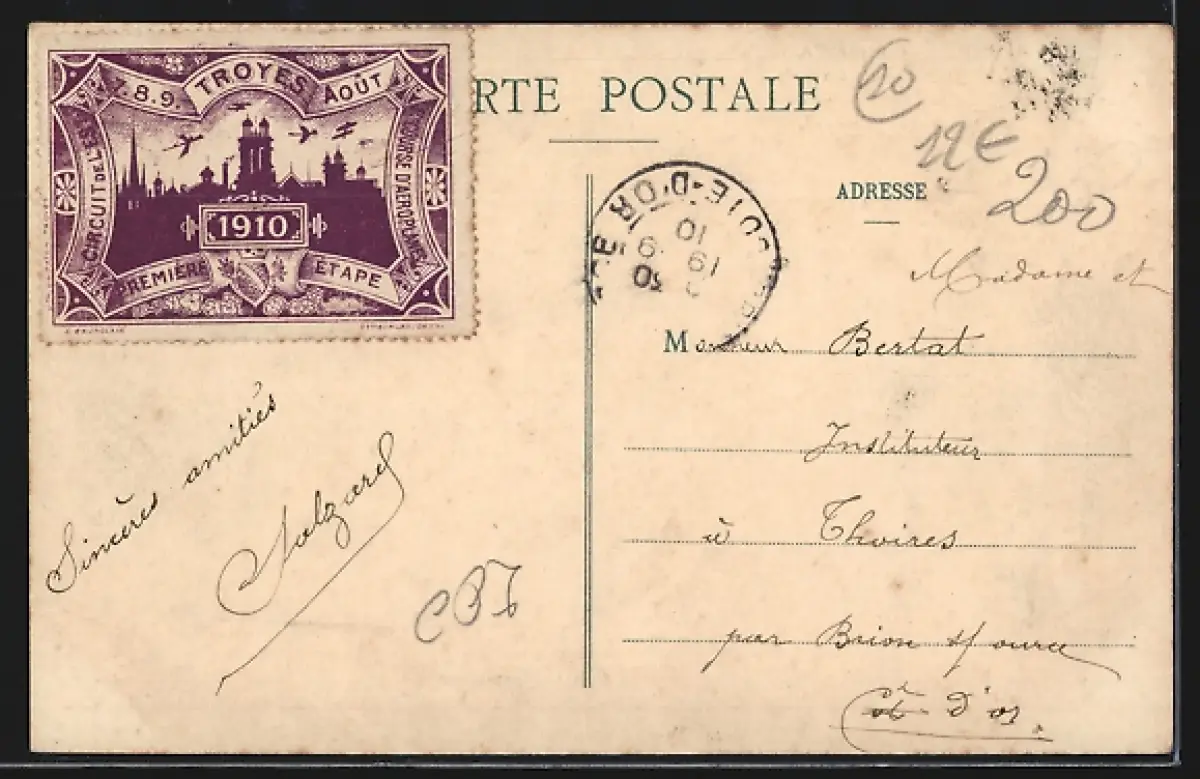 7.8.9. TROYES AOÛT
CIRCUIT DE L'EST
COURSE D'AÉROPLANES
1910
PREMIÈRE ÉTAPE
RTE POSTALE
20
12€
200
ADRESSE
D'OR
10
19 9
Madame et
Monsieur Bertat
Instituteur
à Thoires
par Brion s/ource
Côte d'or.
Sincères amitiés
CPT